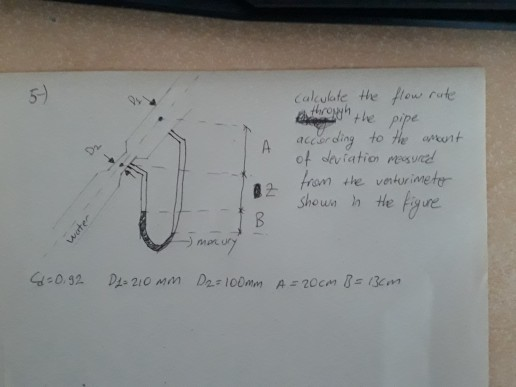 5-)
calculate the flow rate
through the pipe
according to the amount
of deviation measured
from the venturimeter
shown in the figure
D1
D2
A
Z
B
water
mercury
Cd=0.92 D1=210 mm D2=100mm A=20cm B=13cm